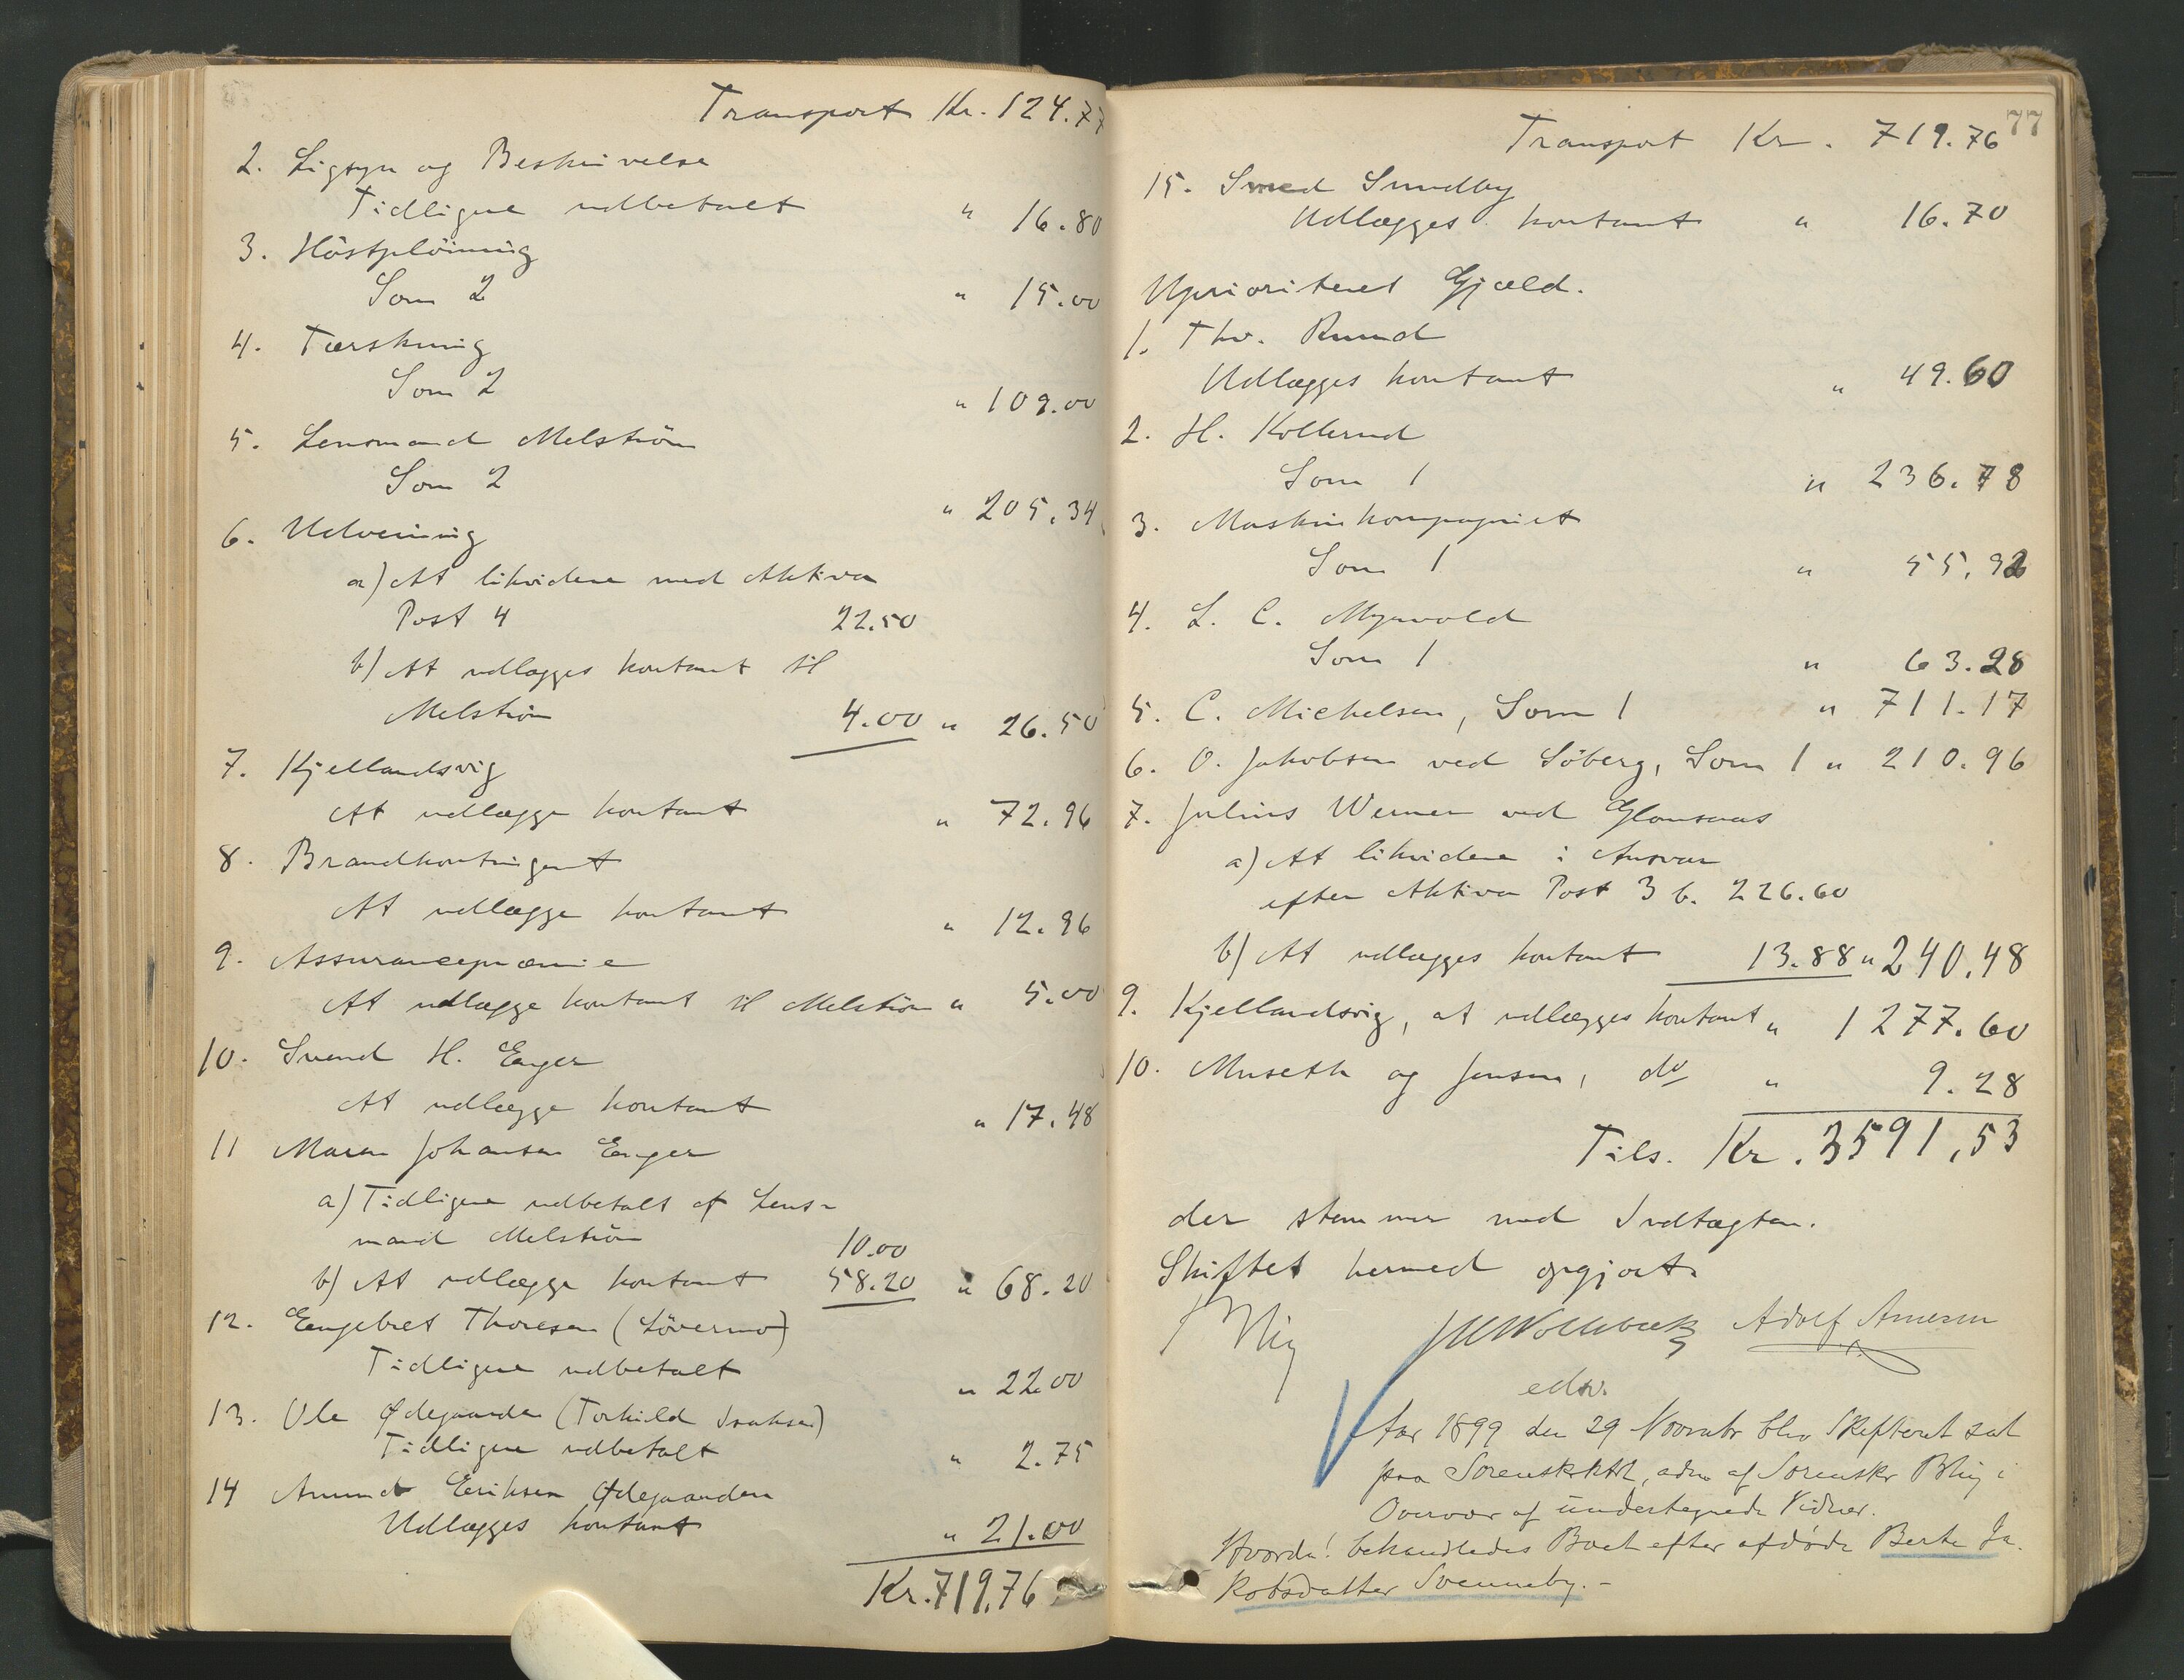 Transport Kr. 124.77
2. Ligsyn og Beskrivelse
Tidligere udbetalt " 16.80
3. Höstplöining
Som 2 " 15.00
4. Tærskning
Som 2 " 109.00
5. Lensmand Melström
Som 2 " 205.34
6. Udvining
a) At likvidere med Aktiva
Post 4 22.50
b) At udlægges kontant til
Melström 4.00 " 26.50
7. Kjellandsvig
At udlægge kontant " 72.96
8. Brandkontingent
At udlægge kontant " 12.96
9. Assurancepræmie
At udlægge kontant til Melström " 5.00
10. Svend H. Enger
At udlægge kontant " 17.48
11 Maren Johansen Enger
a) Tidligere udbetalt af Lens-
mand Melström 10.00
b) At udlægge kontant 58.20 " 68.20
12. Engebret Thoresen (Lövermo)
Tidligere udbetalt " 22.00
13. Ole Ødegaarden (Torkild Isaksen)
Tidligere udbetalt " 2.75
14 Amund Eriksen Ødegaarden
Udlægges kontant " 21.00
Kr. 719.76
77
Transport Kr. 719.76
15. Smed Sundby
Udlægges kontant " 16.70
Uprioriteret Gjæld.
1. Thv. Ruud
Udlægges kontant " 49.60
2. H. Kollerud
Som 1 " 236.78
3. Maskinkompagniet
Som 1 " 55.92
4. L. C. Myrvold
Som 1 " 63.28
5. C. Michelsen, Som 1 " 711.17
6. O. Jakobsen ved Söberg, Som 1 " 210.96
7. Julius Werner ved Glonsaas
a) At likvidere i Ansvar
efter Aktiva Post 3 b. 226.60
b) At udlægges kontant 13.88 " 240.48
9. Kjellandsvig, at udlægges kontant " 1277.60
10. Museth og Jensen, do " 9.28
Tils. Kr. 3591,53
der stemmer med Indtægten.
Skiftet hermed opgjort.
Blig Adolf Arnesen
edsv.
Aar 1899 den 29 Novembr blev Skifteret sat
paa Sorenskrktrt, adm af Sorenskr Blig i
Overvær af undertegnede Vidner.
Hvorda! behandledes Boet efter afdøde Berte Ja-
kobsdatter Svenneby. -